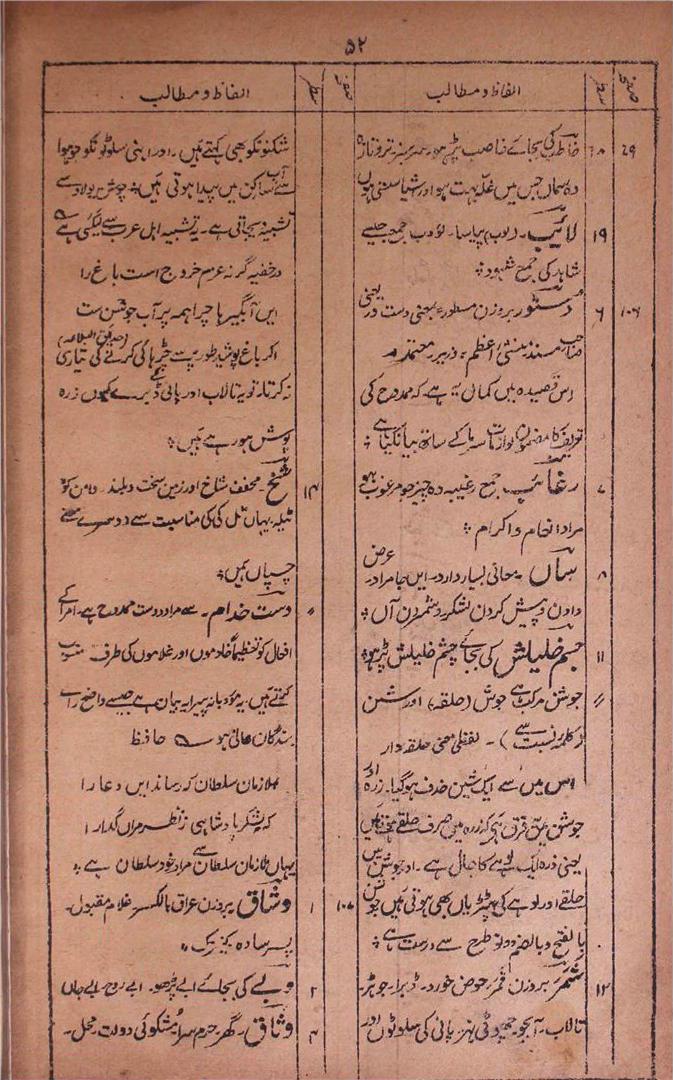 ۵۲
صفحہ سطر الفاظ و مطالب
۲۹ ۲۰ خاطر کی بجائے خاصب پڑھو۔ سرسبز تروتازہ
وہ سماں جس میں غلّہ بہت ہو اور شیا سستی ہوں
۱۹ لائب۔ (لوب) پیاسا۔ لؤوب جمع جیسے
شاہد کی جمع شہود؞
۱۰۶ ۶ دستور بروزن مسطور بمعنی دست در یعنی
صاحب مسند بنشئ اعظم، وزیر معتمد؞
اس قصیدہ میں کمال یہ ہے کہ ممدوح کی
تعریف کا مضمون لوازمات سرما کے ساتھ بیان کیا ہے؞
۷ رغائب جمع رغیبہ وہ چیز جو مرغوب ہو
مراد انعام و اکرام؞
۸ ساں۔ معانی بسیار دارد۔ ایں جا مراد عرض
دادن و پیش کردن لشکر و شمردن آں؞
۱۱ جسم خلیلش کی بجائے چشم خلیلش پڑھو؞
〃 جوشن مرکب ہے جوش (حلقہ) اور شن
(کلمہ نسبت سے)۔ لفظی معنی حلقہ دار
اس میں سے ایک شین حذف ہوگیا۔ زرہ اور
جوشن میں فرق یہی کہ زرہ میں صرف حلقے ہوتے ہیں
یعنی زرہ ایک لوہے کا جال ہے۔ اور جوشن میں
حلقے اور لوہے کی پتریاں بھی ہوتی ہیں جوشن
بالفتح و بالضم دونو طرح سے درست ہے؞
۱۲ شمر بروزن قمر حوض خورد۔ ڈبرا۔ جوہڑ۔
تالاب۔ آبجو۔ چھوٹی نہر۔ پانی کی سلوٹوں اور
صفحہ سطر الفاظ و مطالب
شکنو نکو بھی کہتے ہیں۔ اور اپنی سلوٹو نکو جو ہوا
سے آب ساکن میں پیدا ہوتی ہیں؞ جوشن پولاد سے
تشبیہ دیجاتی ہے۔ یہ تشبیہ اہل عرب سے لیگئی ہے ؎
در خفیہ گر نہ عزم خروج است باغ را
ایں آبگیر ہا چرا ہمہ پر آب جوشن ست
اگر باغ پوشیدہ طور پر سے چڑہائی کرنے کی تیاری (حدیق البلاغہ)
نہ کرتا۔ تو یہ تالاب اور پانی کے ڈبرے کیوں زرہ
پوش ہو رہے ہیں؞
۱۴ شخ۔ مخفف شاخ اور زمین سخت و بلند۔ دامن کوہ
ٹیلہ۔ یہاں تل کی کی مناسبت سے دوسرے معنے
چسپاں ہیں؞
〃 دست خدام۔ سے مراد دست ممدوح ہے۔ امرا کے
افعال کو تعظیماً خادموں اور غلاموں کی طرف منسوب
کرتے ہیں۔ یہ مؤدبانہ پیرایہ بیان ہے جیسے واضح رائے
بندگان عالی ہو ؎ حافظ
بملازمان سلطان کہ رساند ایں دعا را
کہ بشکر پادشاہی ز نظر مراں گدا را
یہاں ملازمان سلطان سے مراد خود سلطان ہے؞
۱۰۷ ۱ وشاق بروزن عراق بالکسر غلام مقبول۔
پسر سادہ۔ کنیزک،،
۲ ولے کی بجائے ابے پڑھو۔ ابے روح۔ بے جاں
۴ وثاق۔ گھر۔ حرم سرا۔ مشکوئی دولت۔ محل۔